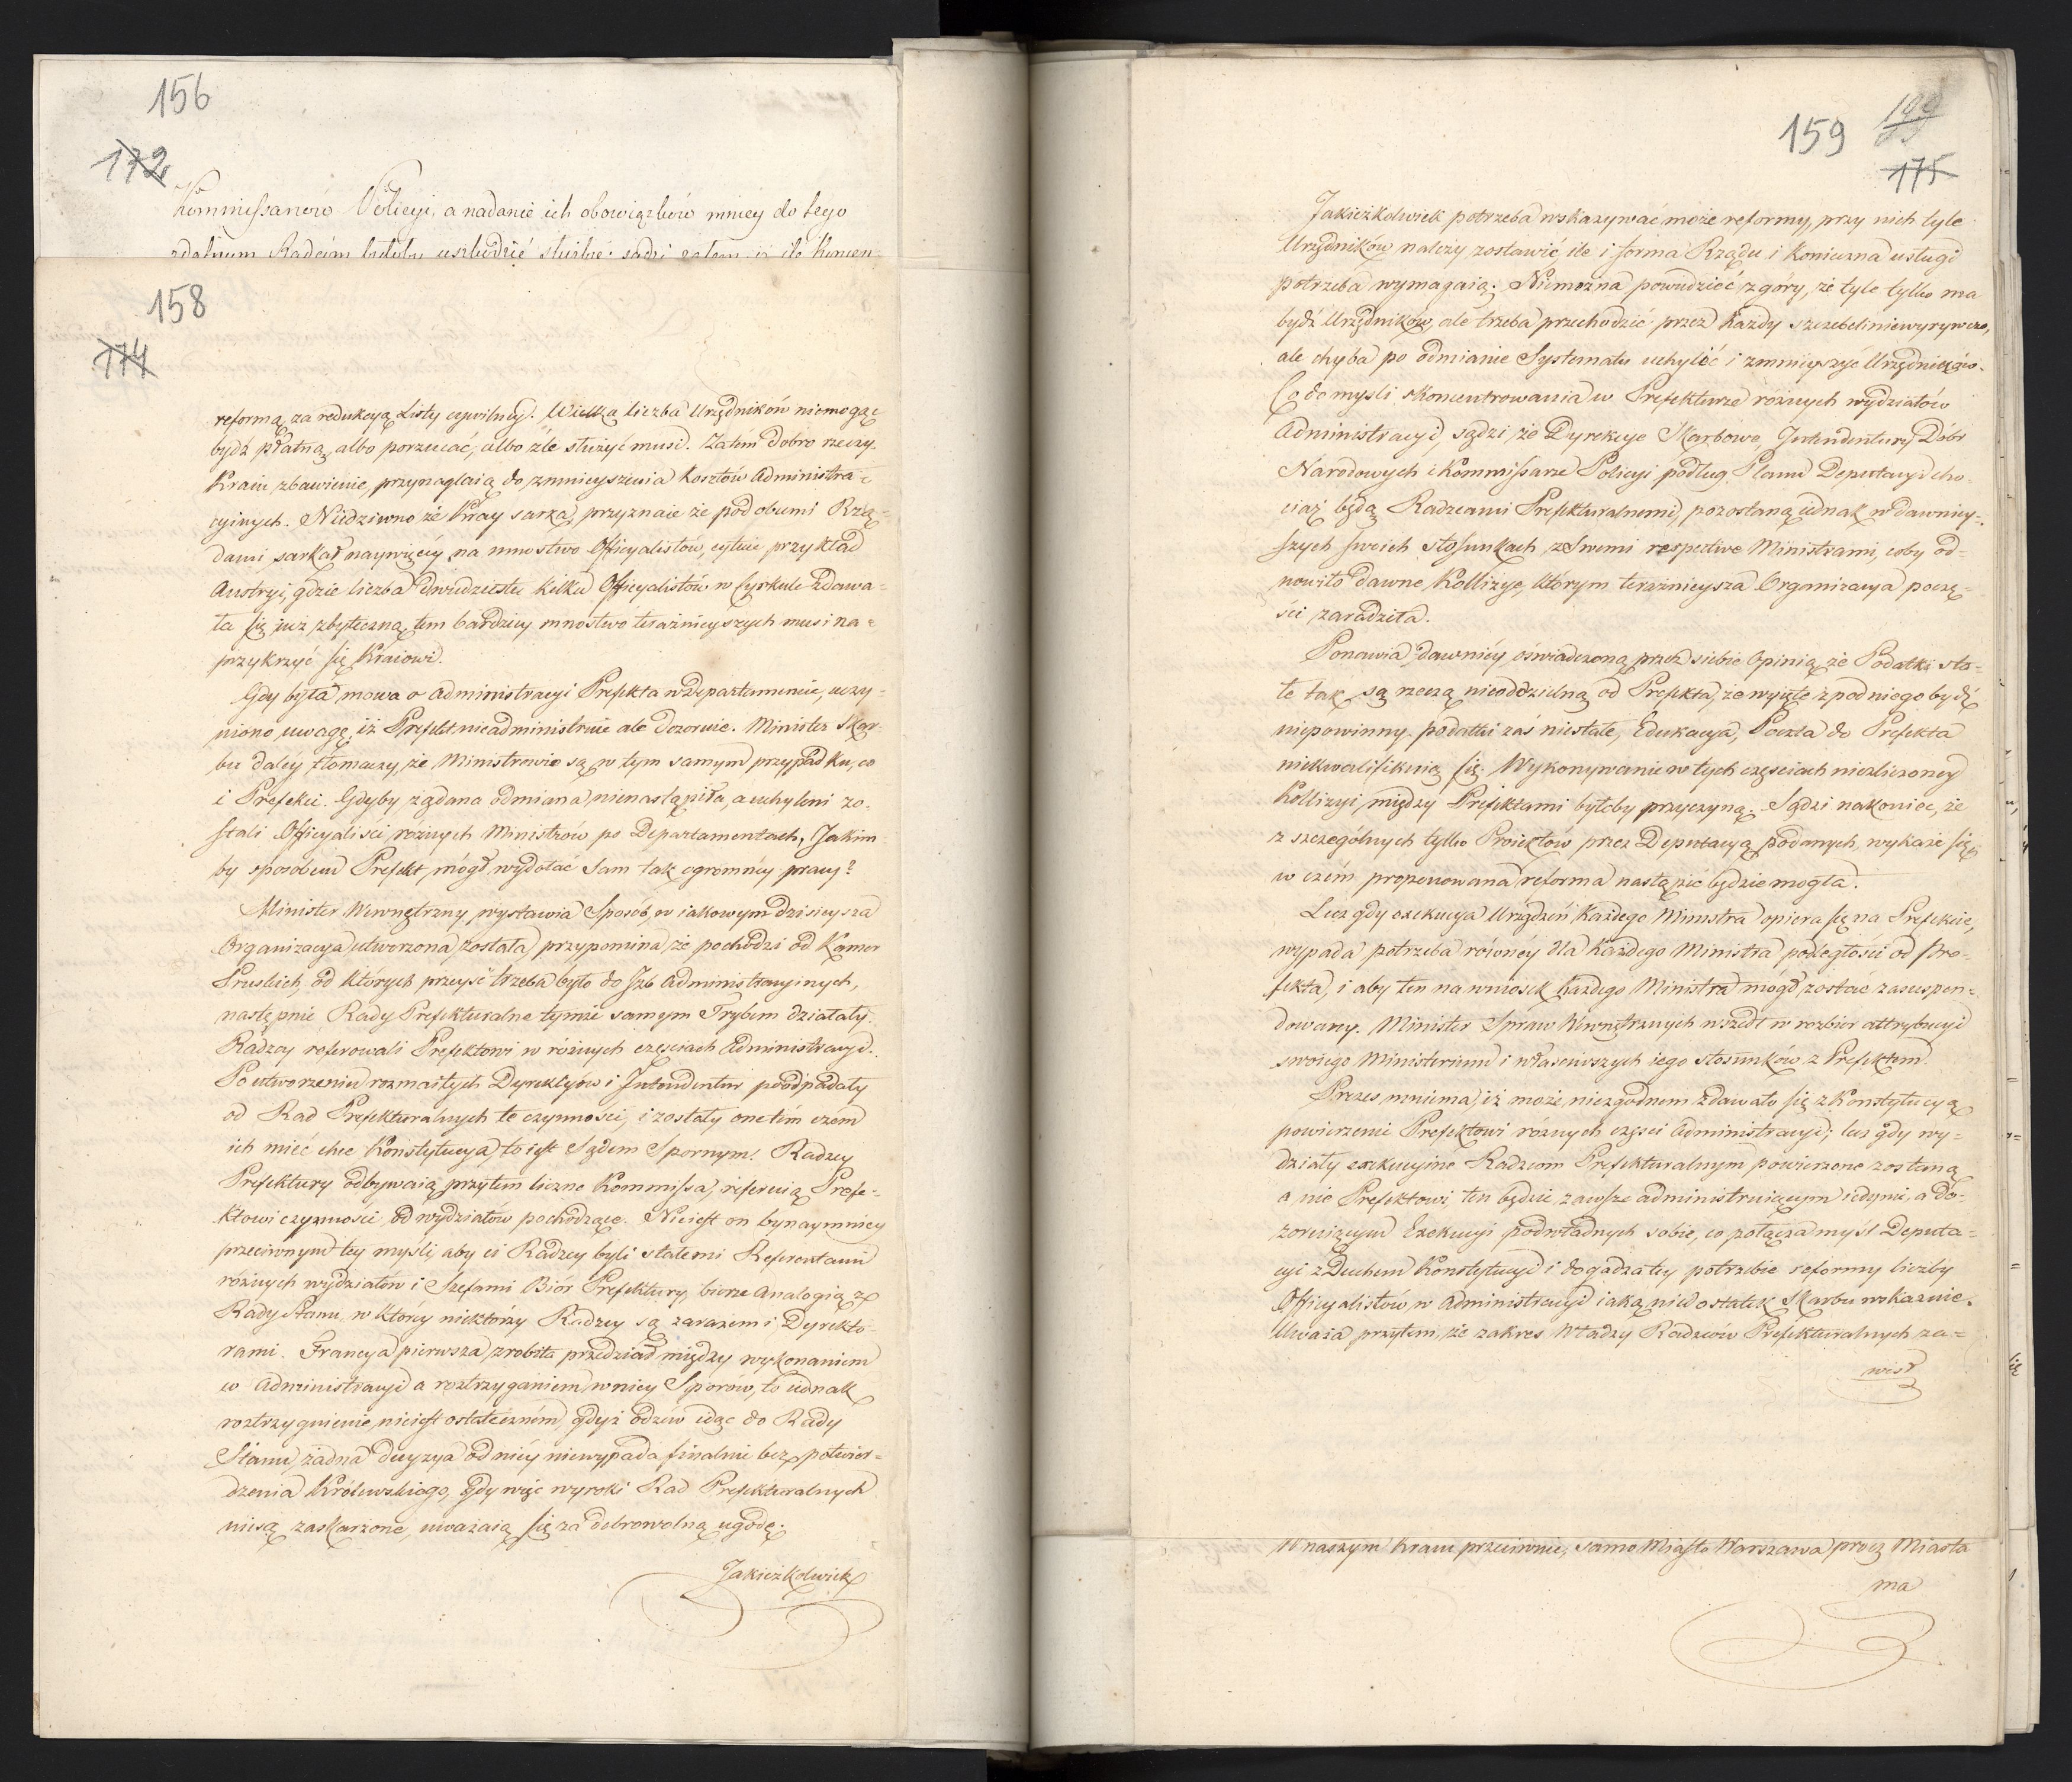 156
172
Kommissarzów Policyi, a nadanie ich obowiązków mniey do tego
zdatnym Radcóm byłoby uszkodzić służbie: sądzi zatem, iż ile koncen-
158
174
reformą, za redukcyą Listy cywilney. Wielka liczba Urzędników niemogąc
bydź płatną, albo porzucać, albo źle służyć musi. Zatém dobro rzeczy,
Kraiu zbawienie, przynaglaią do zmnieyszenia kosztów Administra-
cyinych. Niedziwno że Kray sarka, przyznaie że pod obumi Rzą-
dami sarkał naywięcéy na mnostwo Officyalistów, cytuie przykład
Austryi, gdzie liczba dwudziestu kilku Officyalistów w Cyrkule zdawa-
ła się iuż zbyteczną, tem bardziey mnostwo teraźnieyszych musi na-
przykrzyć się Kraiowi.
Gdy była mowa o Administracyi Prefekta w Departamencie, uczy-
niono uwagę, iż Prefekt nieadministruie ale dozoruie. Minister Skar-
bu daléy tłomaczy, że Ministrowie są w tym samym przypadku, co
i Prefekci. Gdyby żądana odmiana nienastąpiła, a uchyleni zo-
stali Officyalisci różnych Ministrów po Departamentach, Jakim
by sposobem Prefekt mógł wydołać sam tak ogromnéy pracy?
Minister Wewnętrzny wystawia Sposób, w iakowym dzisieysza
Organizacya utworzona została, przypomina, że pochodzi od Kamer
Pruskich, od których przeyść trzeba było do Jzb Administracyinych,
następnie Rady Prefekturalne tymże samym Trybem działały.
Radzcy referowali Prefektowi w różnych częściach Administracyi.
Po utworzeniu rozmaitych Dyrekcyów i Jntendentur poodpadały
od Rad Prefekturalnych te czynności, i zostały one tém czem
ich mieć chce Konstytucya, to iest Sądem Spornym. Radzcy
Prefektury odbywaią przytem liczne Kommissa, referuią Prefe-
ktowi czynności od wydziałów pochodzące. Nieiest on bynaymniey
przeciwnym tey myśli, aby ci Radzcy byli stałemi Referentami
różnych wydziałów i Szefami Biór Prefektury, bierze analogią z
Rady Stanu, w któréy niektórzy Radzcy są zarazem i Dyrekto-
rami. Francya pierwsza zrobiła przedział między wykonaniem
w Administracyi a roztrzyganiem w niey Sporów, to iednak
roztrzygnienie nieiest ostateczném, gdyż odzéw idąc do Rady
Stanu, żadna decyzya od niéy niewypada finalnie bez potwier-
dzenia Królewskiego, Gdy więc wyroki Rad Prefekturalnych
niesą zaskarżone, uważaią się za dobrowolną ugodę.
Jakieżkolwiek
159
175
Jakieżkolwiek potrzeba wskazywać może reformy, przy nich tyle
Urzędników należy zostawić, ile i forma Rządu i konieczna usługi
potrzeba wymagaią. Niemożna powiedzieć z góry, że tyle tylko ma
bydź Urzędników, ale trzeba przechodzić przez każdy szczebel i niewyrywczo,
ale chyba po odmianie Systematu uchylić i zmnieyszyć Urzędników.
Co do myśli skoncentrowania w Prefekturze różnych wydziałów
Administracyi, sądzi, że Dyrekcye Skarbowe, Jntendentury Dóbr
Narodowych i Kommissarze Policyi podług Planu Deputacyi cho-
ciaż będą Radzcami Prefekturalnemi, pozostaną iednak w dawniey-
szych swoich stosunkach z Swemi respective Ministrami, coby od-
nowiło dawne Kollizye, którym teraźnieysza Organizacya poczę-
ści zaradziła.
Ponawia dawniéy oświadczoną przez siebie Opinią, że Podatki sta-
łe tak są rzeczą nieoddzielną od Prefekta, że wyięte z pod niego bydź
niepowinny. podatki zaś niestałe, Edukacya, Poczta do Prefekta
niekwalifikuią się. Wykonywanie w tych częściach niezliczoney
Kollizyi, między Prefektami byłoby przyczyną. Sądzi nakoniec, że
z szczególnych tylko Proiektów przez Deputacyą podanych, wykaże się
w czém proponowana reforma nastąpić będzie mogła.
Lecz gdy exekucya Urządzeń każdego Ministra opiera się na Prefekcie,
wypada potrzeba równéy dla każdego Ministra podległości od Pre-
fekta, i aby ten na wniosek każdego Ministra mógł zostać zasuspen-
dowany. Minister Spraw Wewnętrznych wszedł w rozbiór attrybucyi
swoiego Ministerium i właściwszych iego stosunków z Prefektem.
Prezes mniema, iż może niezgodnem zdawało się z Konstytucyą
powierzenie Prefektowi różnych części Administracyi; lecz gdy wy-
działy exekucyine Radzcom Prefekturalnym powierzone zostaną
a nie Prefektowi, ten będzie zawsze administruiącym iedynie, a do-
zoruiącym Exekucyi podwładnych sobie, co połącza myśl Deputa-
cyi z Duchem Konstytucyi i dogadza tey potrzebie reformy liczby
Officyalistów w Administracyi iaką niedostatek Skarbu wskazuie.
Uważa przytem, że zakres Władzy Radzców Prefekturalnych za-
wisł
W naszym kraiu przeciwnie, samo Miasto Warszawa prócz Miasta
ma